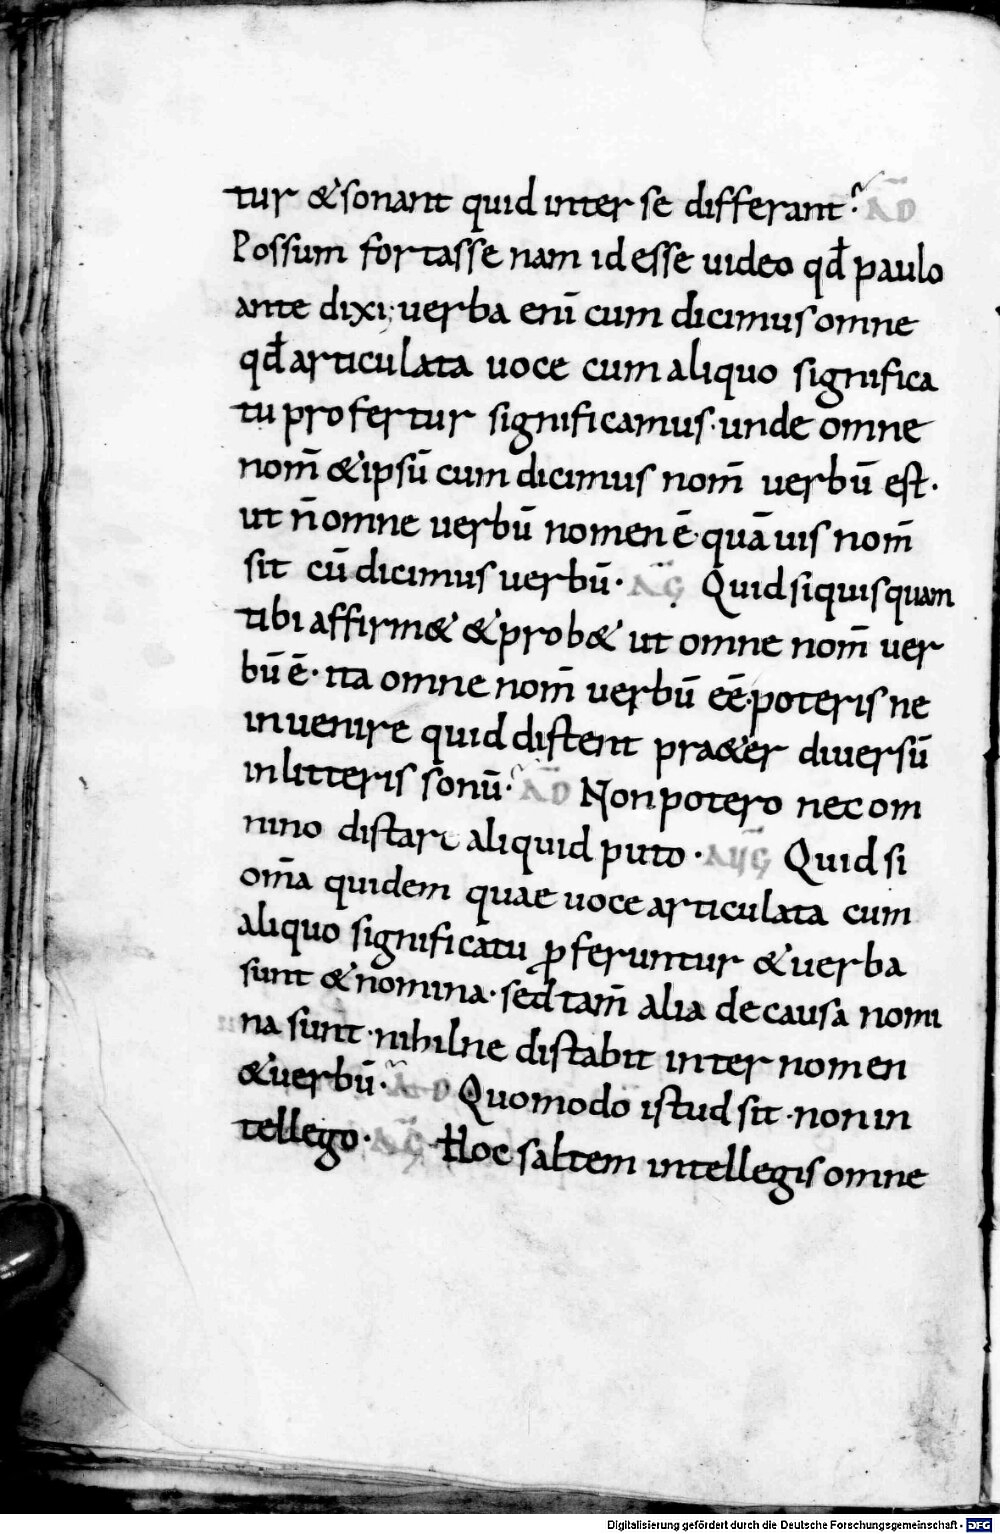 tur & sonant quid inter se differant? AD̄
Possum fortasse nam id esse uideo qđ paulo
ante dixi; uerba enī cum dicimus omne
qđ articulata uoce cum aliquo significa
tu profertur significamus· unde omne
nom̄ & ipsū cum dicimus nom̄ uerbū est·
ut n̄ omne uerbū nomen ē· quāuis nom̄
sit cū dicimus uerbū· AḠ Quid si quisquam
tibi affirm& & prob& ut omne nom̄ uer
bū ē· ita omne nom̄ uerbū eē· poteris ne
inuenire quid distent pra&er diuersū
in litteris sonū? AD̄ Non potero nec om
nino distare aliquid puto· AUḠ Quid si
om̄a quidem quae uoce articulata cum
aliquo significatu ꝓferuntur & uerba
sunt & nomina· sed tam̄ alia de causa nomi
na sunt· nihilne distabit inter nomen
& uerbū? AD Quomodo istud sit· non in
tellego· AḠ Hoc saltem intellegis omne
Digitalisierung gefördert durch die Deutsche Forschungsgemeinschaft - DFG